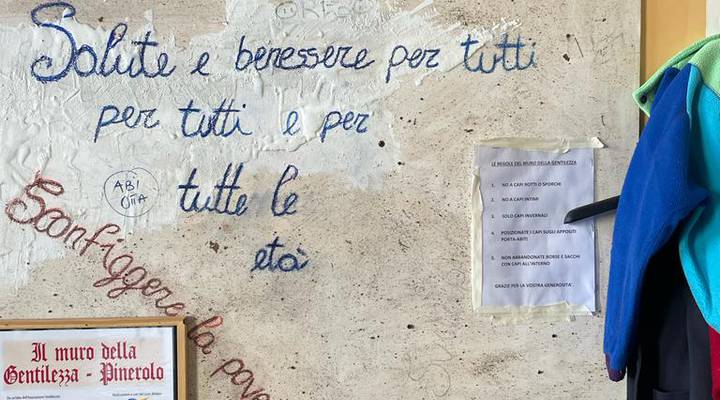 Salute e benessere per tutti
per tutti e per
tutte le
età
Sconfiggere la pove
LE REGOLE DEL MURO DELLA GENTILEZZA
1. NO A CAPI ROTTI O SPORCHI
2. NO A CAPI INTIMI
3. SOLO CAPI INVERNALI
4. POSIZIONATE I CAPI SUGLI APPOSITI
PORTA-ABITI
5. NON ABBANDONATE BORSE E SACCHI
CON CAPI ALL'INTERNO
GRAZIE PER LA VOSTRA GENEROSITA'.
Il muro della
Gentilezza - Pinerolo